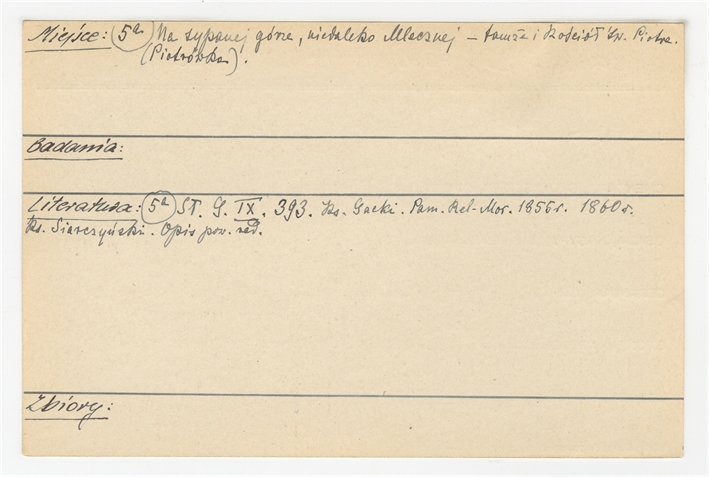 Miejsce: 5a Na sypanej górze, niedaleko Mlecznej – tamże i Kościół Św. Piotra.
(Piotrówka).
Badania:
Literatura: 5a St. G. IX. 393. Ks. Gacki. Pam. Rel-Mor. 1856r. 1860r.
Ks. Siarczyński. Opis pow. rad.
Zbiory: